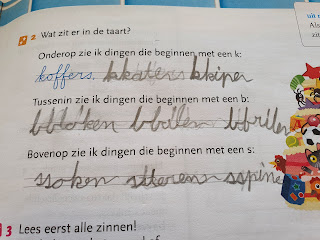 2 Wat zit er in de taart?
uit
Als
zit
Onderop zie ik dingen die beginnen met een k:
koffers, kkatten kkipen
Tussenin zie ik dingen die beginnen met een b:
bblokken bbrilen
Bovenop zie ik dingen die beginnen met een s:
ssoken ssterren sspine
3 Lees eerst alle zinnen!